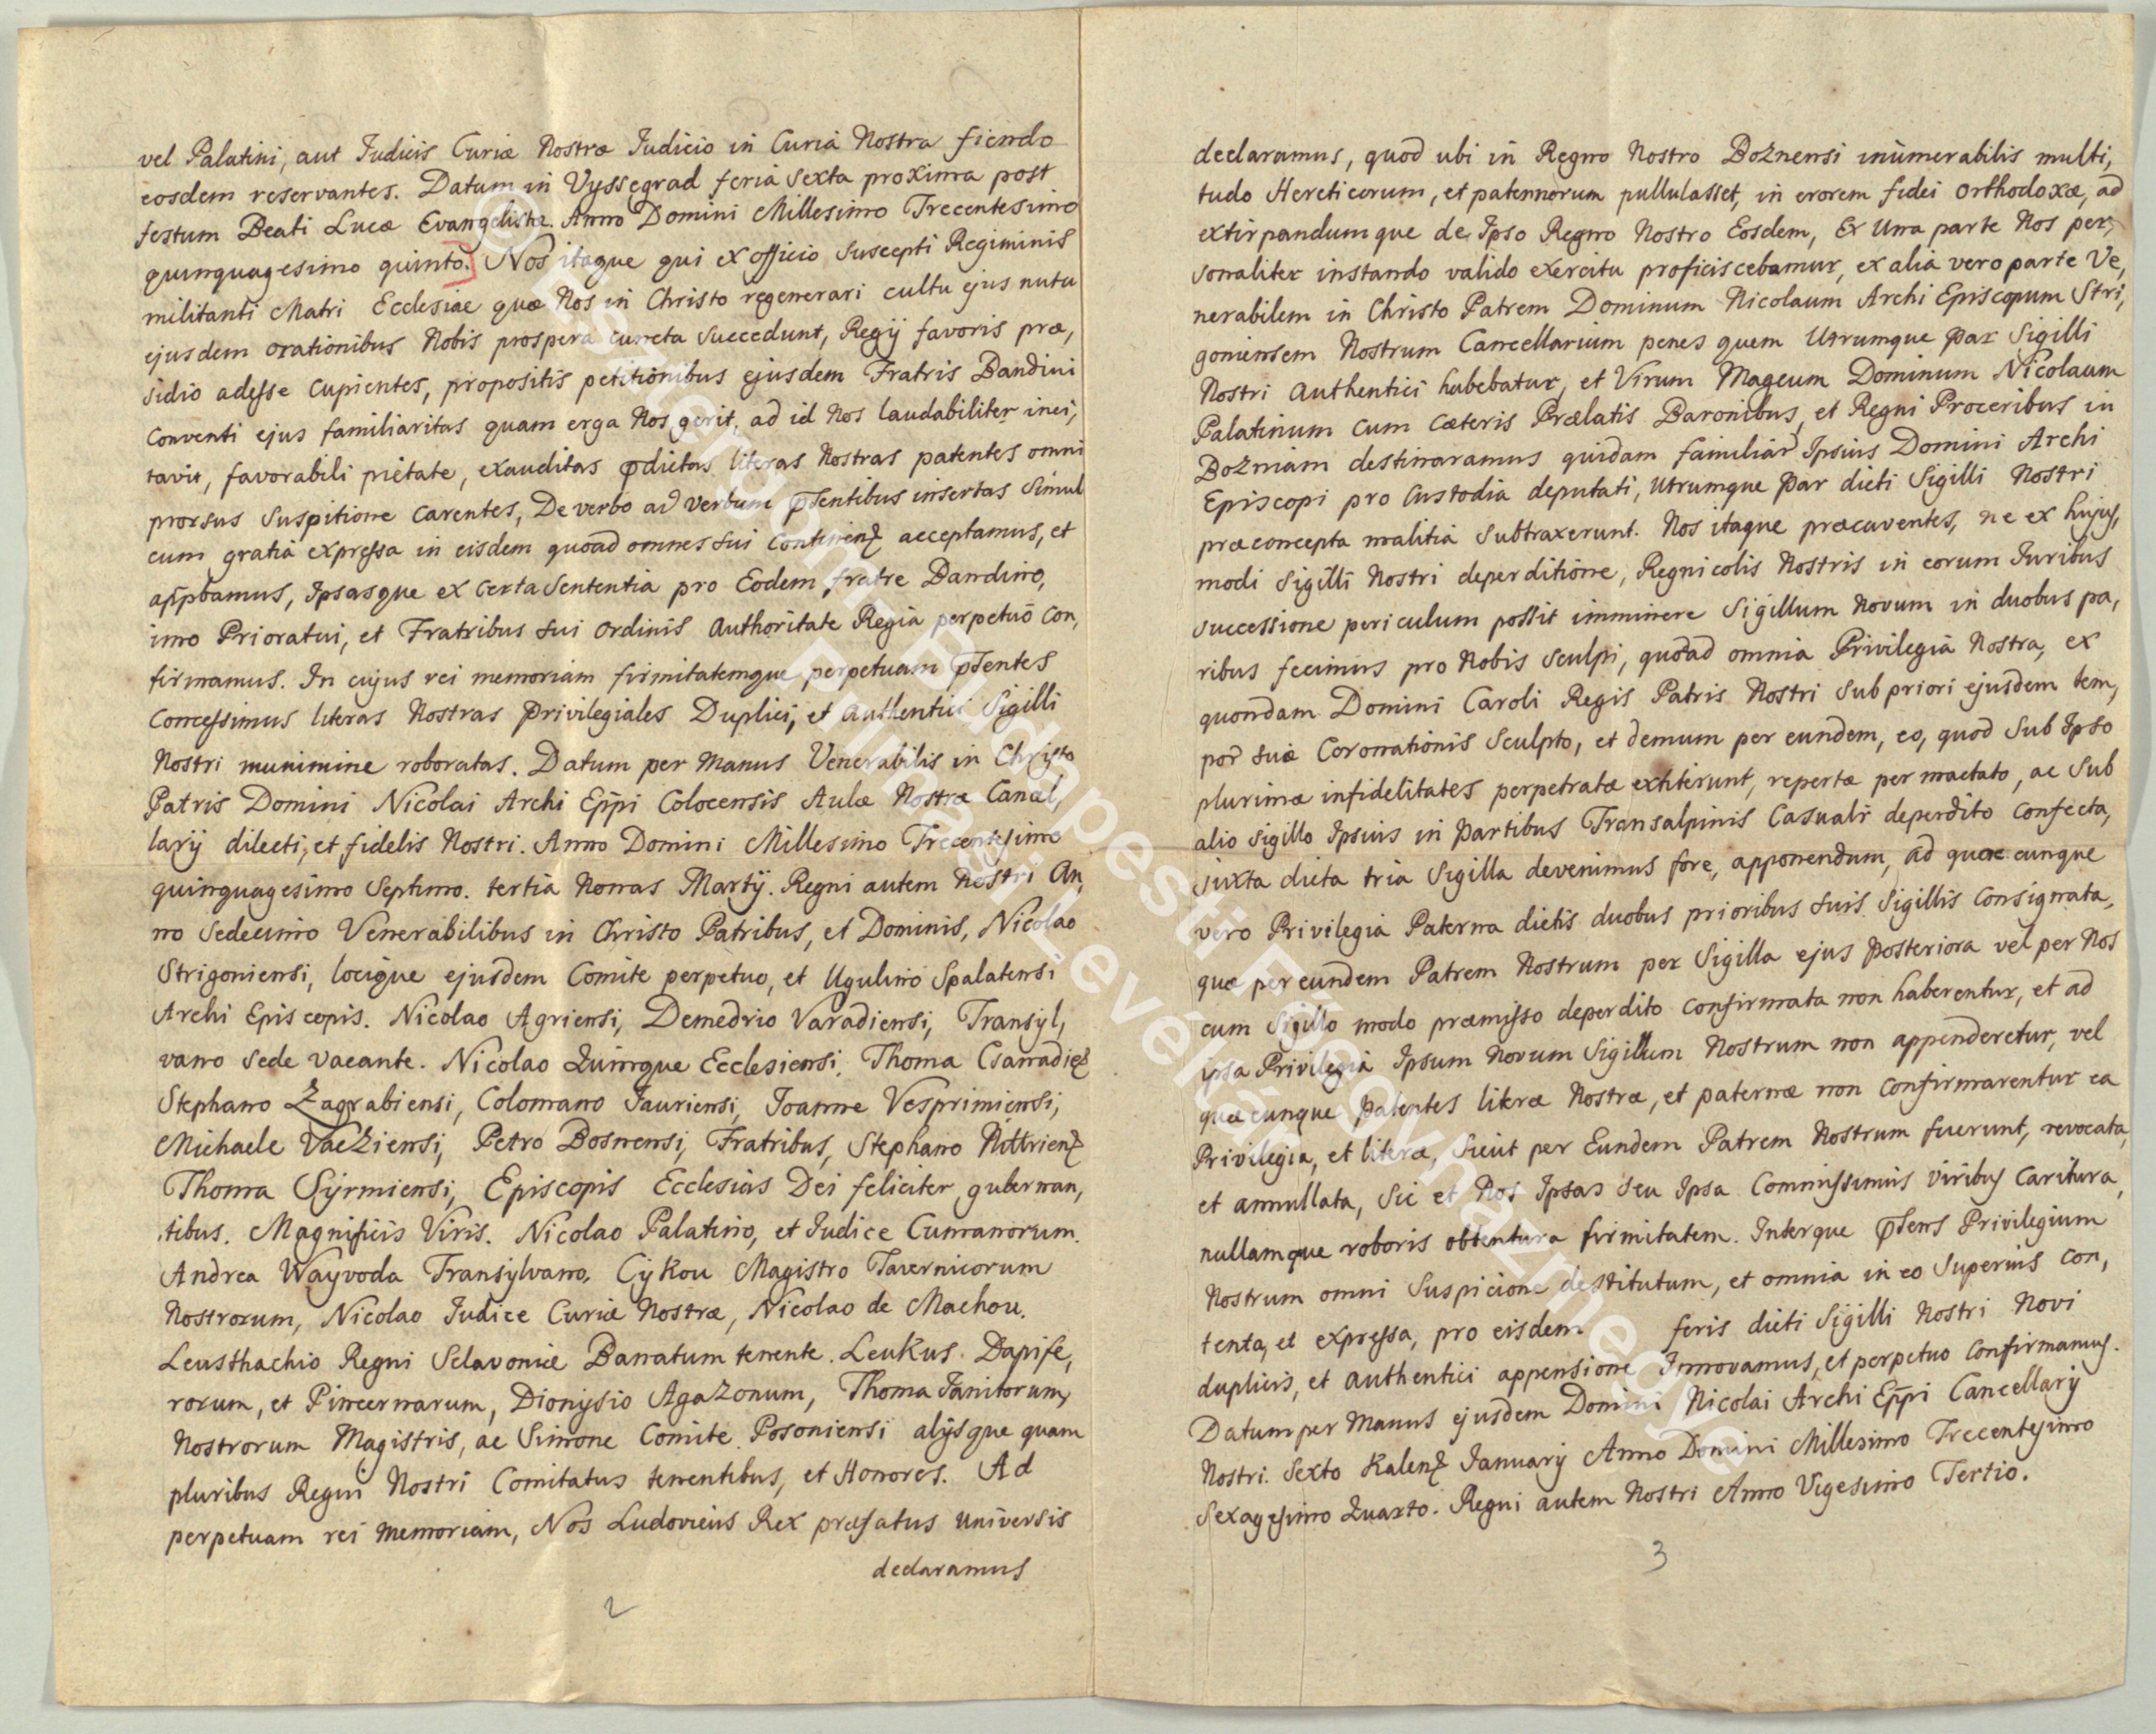 vel Palatini, aut Judicis Curiæ Nostræ Judicio in Curia Nostra fiendo
eosdem reservantes. Datum in Vyssegrad feria sexta proxima post
festum Beati Lucæ Evangelistæ. Anno Domini Millesimo Trecentesimo
quinquagesimo quinto.] Nos itaque qui ex officio suscepti Regiminis
militanti Matri Ecclesiae quæ Nos in Christo regenerari cultu ejus nutu
ejusdem orationibus Nobis prospera cuncta succedunt, Regÿ favoris præ,
sidio adesse cupientes, propositis petitionibus ejusdem Fratris Bandini
conventi ejus familiaritas quam erga Nos gerit, ad id Nos laudabiliter inci,
tavit, favorabili pietate, exauditas pdictas literas Nostras patentes omni
prorsus suspitione carentes, De verbo ad verbum psentibus insertas simul
cum gratia expressa in eisdem quoad omnes sui continenz acceptamus, et
appbamus, Ipsasque ex certa sententia pro Eodem fratre Bandino,
imo Prioratui, et Fratribus sui ordinis Authoritate Regia perpetuo con,
firmamus. In cujus rei memoriam firmitatemque perpetuam psentes
concessimus literas Nostras Privilegiales Duplici, et Authentici Sigilli
Nostri munimine roboratas. Datum per manus Venerabilis in Christo
Patris Domini Nicolai Archi Eppi Colocensis Aulæ Nostræ Cancel,
larÿ dilecti, et fidelis Nostri. Anno Domini Millesimo Trecentesimo
quinquagesimo Septimo. tertia Nonas Martÿ. Regni autem Nostri An,
no Sedecimo Venerabilibus in Christo Patribus, et Dominis, Nicolao
Strigoniensi, locique ejusdem Comite perpetuo, et Ugulino Spalatensi
Archi Episcopis. Nicolao Agriensi, Demedrio Varadiensi, Transyl,
vano sede vacante. Nicolao Quinque Ecclesiensi, Thoma Csanadiez
Stephano Zagrabiensi, Colomano Jauriensi, Joanne Vesprimiensi,
Michaele Vacziensi, Petro Bosnensi, Fratribus, Stephano Nittrienz
Thoma Syrmiensi, Episcopis Ecclesias Dei feliciter gubernan,
tibus. Magnificis Viris. Nicolao Palatino, et Judice Cumanorum.
Andrea Wayvoda Transylvano, Cykou Magistro Tavernicorum
Nostrorum, Nicolao Judice Curiæ Nostræ, Nicolao de Machou.
Leusthachio Regni Sclavoniæ Banatum tenente. Leukus Dapife,
rorum, et Pincernarum, Dionysio Agazonum, Thoma Janitorum,
Nostrorum Magistris, ac Simone Comite Posoniensi alÿsque quam
pluribus Regni Nostri Comitatus tenentibus, et Honores. Ad
perpetuam rei memoriam, Nos Ludovicus Rex præfatus universis
declaramus
2
declaramus, quod ubi in Regno Nostro Boznensi inumerabilis multi,
tudo Hereticorum, et patennorum pullulasset, in erorem fidei orthodoxæ, ad
extirpandumque de Ipso Regno Nostro Eosdem, Ex Una parte Nos per,
sonaliter instando valido exercitu proficiscebamur, ex alia vero parte Ve,
nerabilem in Christo Patrem Dominum Nicolaum Archi Episcopum Stri,
goniensem Nostrum Cancellarium penes quem Utrumque Par Sigilli
Nostri Authentici habebatur, et Virum Mageum Dominum Nicolaum
Palatinum cum cæteris Prælatis Baronibus, et Regni Proceribus in
Bozniam destinaramus quidam familiar Ipsius Domini Archi
Episcopi pro Custodia deputati, Utrumque Par dicti Sigilli Nostri
præconcepta malitia subtraxerunt. Nos itaque præcaventes, ne ex hujus,
modi Sigilli Nostri deperditione, Regnicolis Nostris in eorum Juribus
successione periculum possit imminere Sigillum Novum in duobus pa,
ribus fecimus pro Nobis sculpi, quoad omnia Privilegia Nostra, ex
quondam Domini Caroli Regis Patris Nostri sub priori ejusdem tem,
por suæ Coronationis sculpto, et demum per eundem, eo, quod sub Ipso
plurimæ infidelitates perpetratæ extiterunt, repertæ per mactato, ac sub
alio sigillo Ipsius in Partibus Transalpinis Casualr deperdito confecta,
juxta dicta tria Sigilla devenimus fore, apponendum, ad quæcunque
vero Privilegia Paterna dictis duobus prioribus suis Sigillis consignata,
quæ per eundem Patrem Nostrum per Sigilla ejus Posteriora vel per Nos
cum Sigillo modo præmisso deperdito confirmata non haberentur, et ad
ipsa Privilegia Ipsum Novum Sigillum Nostrum non appenderetur, vel
quæcunque Patentes literæ Nostræ, et paternæ non confirmarentur ea
Privilegia, et literæ, sicut per Eundem Patrem Nostrum fuerunt, revocata,
et annullata, Sic et Nos Ipsas seu Ipsa Commissimus viribus caritura,
nullamque roboris obtentura firmitatem. Interque psens Privilegium
Nostrum omni Suspicione destitutum, et omnia in eo Superius con,
tenta, et expressa, pro eisdem feris dicti Sigilli Nostri Novi
duplicis, et authentici appensione Innovamus, et perpetuo confirmamus.
Datum per Manus ejusdem Domini Nicolai Archi Eppi Cancellarÿ
Nostri. Sexto Kalenz Januarÿ Anno Domini Millesimo Trecentesimo
Sexagesimo Quarto. Regni autem Nostri Anno Vigesimo Tertio.
3